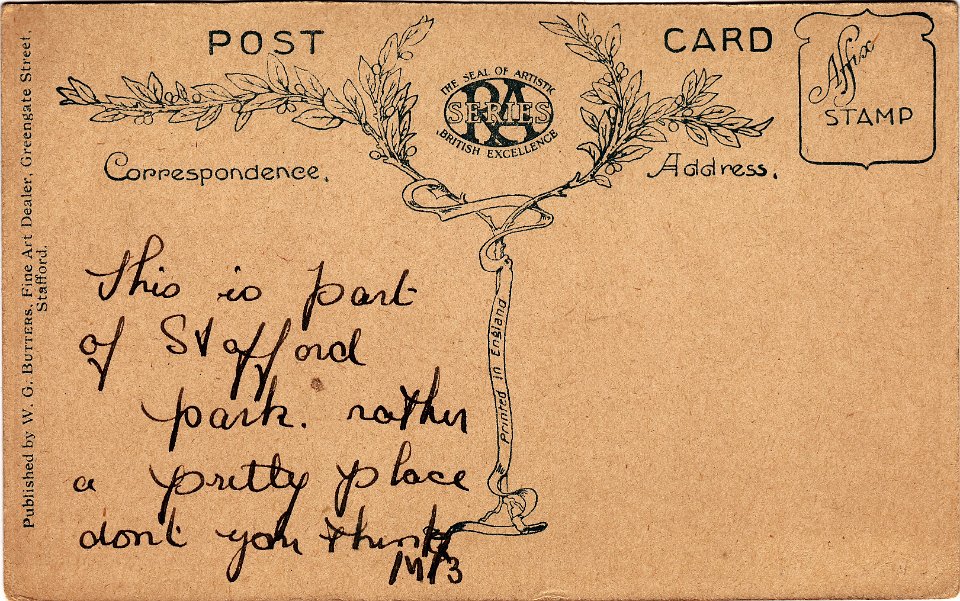 POST CARD
THE SEAL OF ARTISTIC
RA
SERIES
BRITISH EXCELLENCE
Affix
STAMP
Correspondence.
Address.
This is part
of Stafford
park. rather
a pretty place
dont you think
Printed in England
Published by W. G. BUTTERS, Fine Art Dealer, Greengate Street,
Stafford.